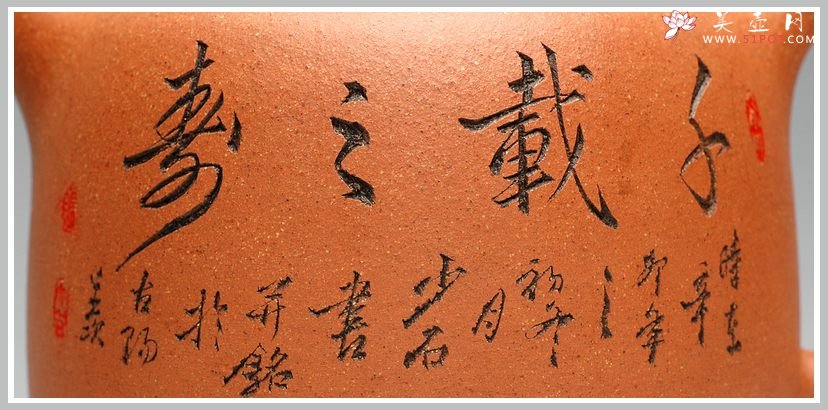 千載之壽
時在辛卯年之初冬月石書并銘於古陽羨次
美壶网
WWW.51POT.COM